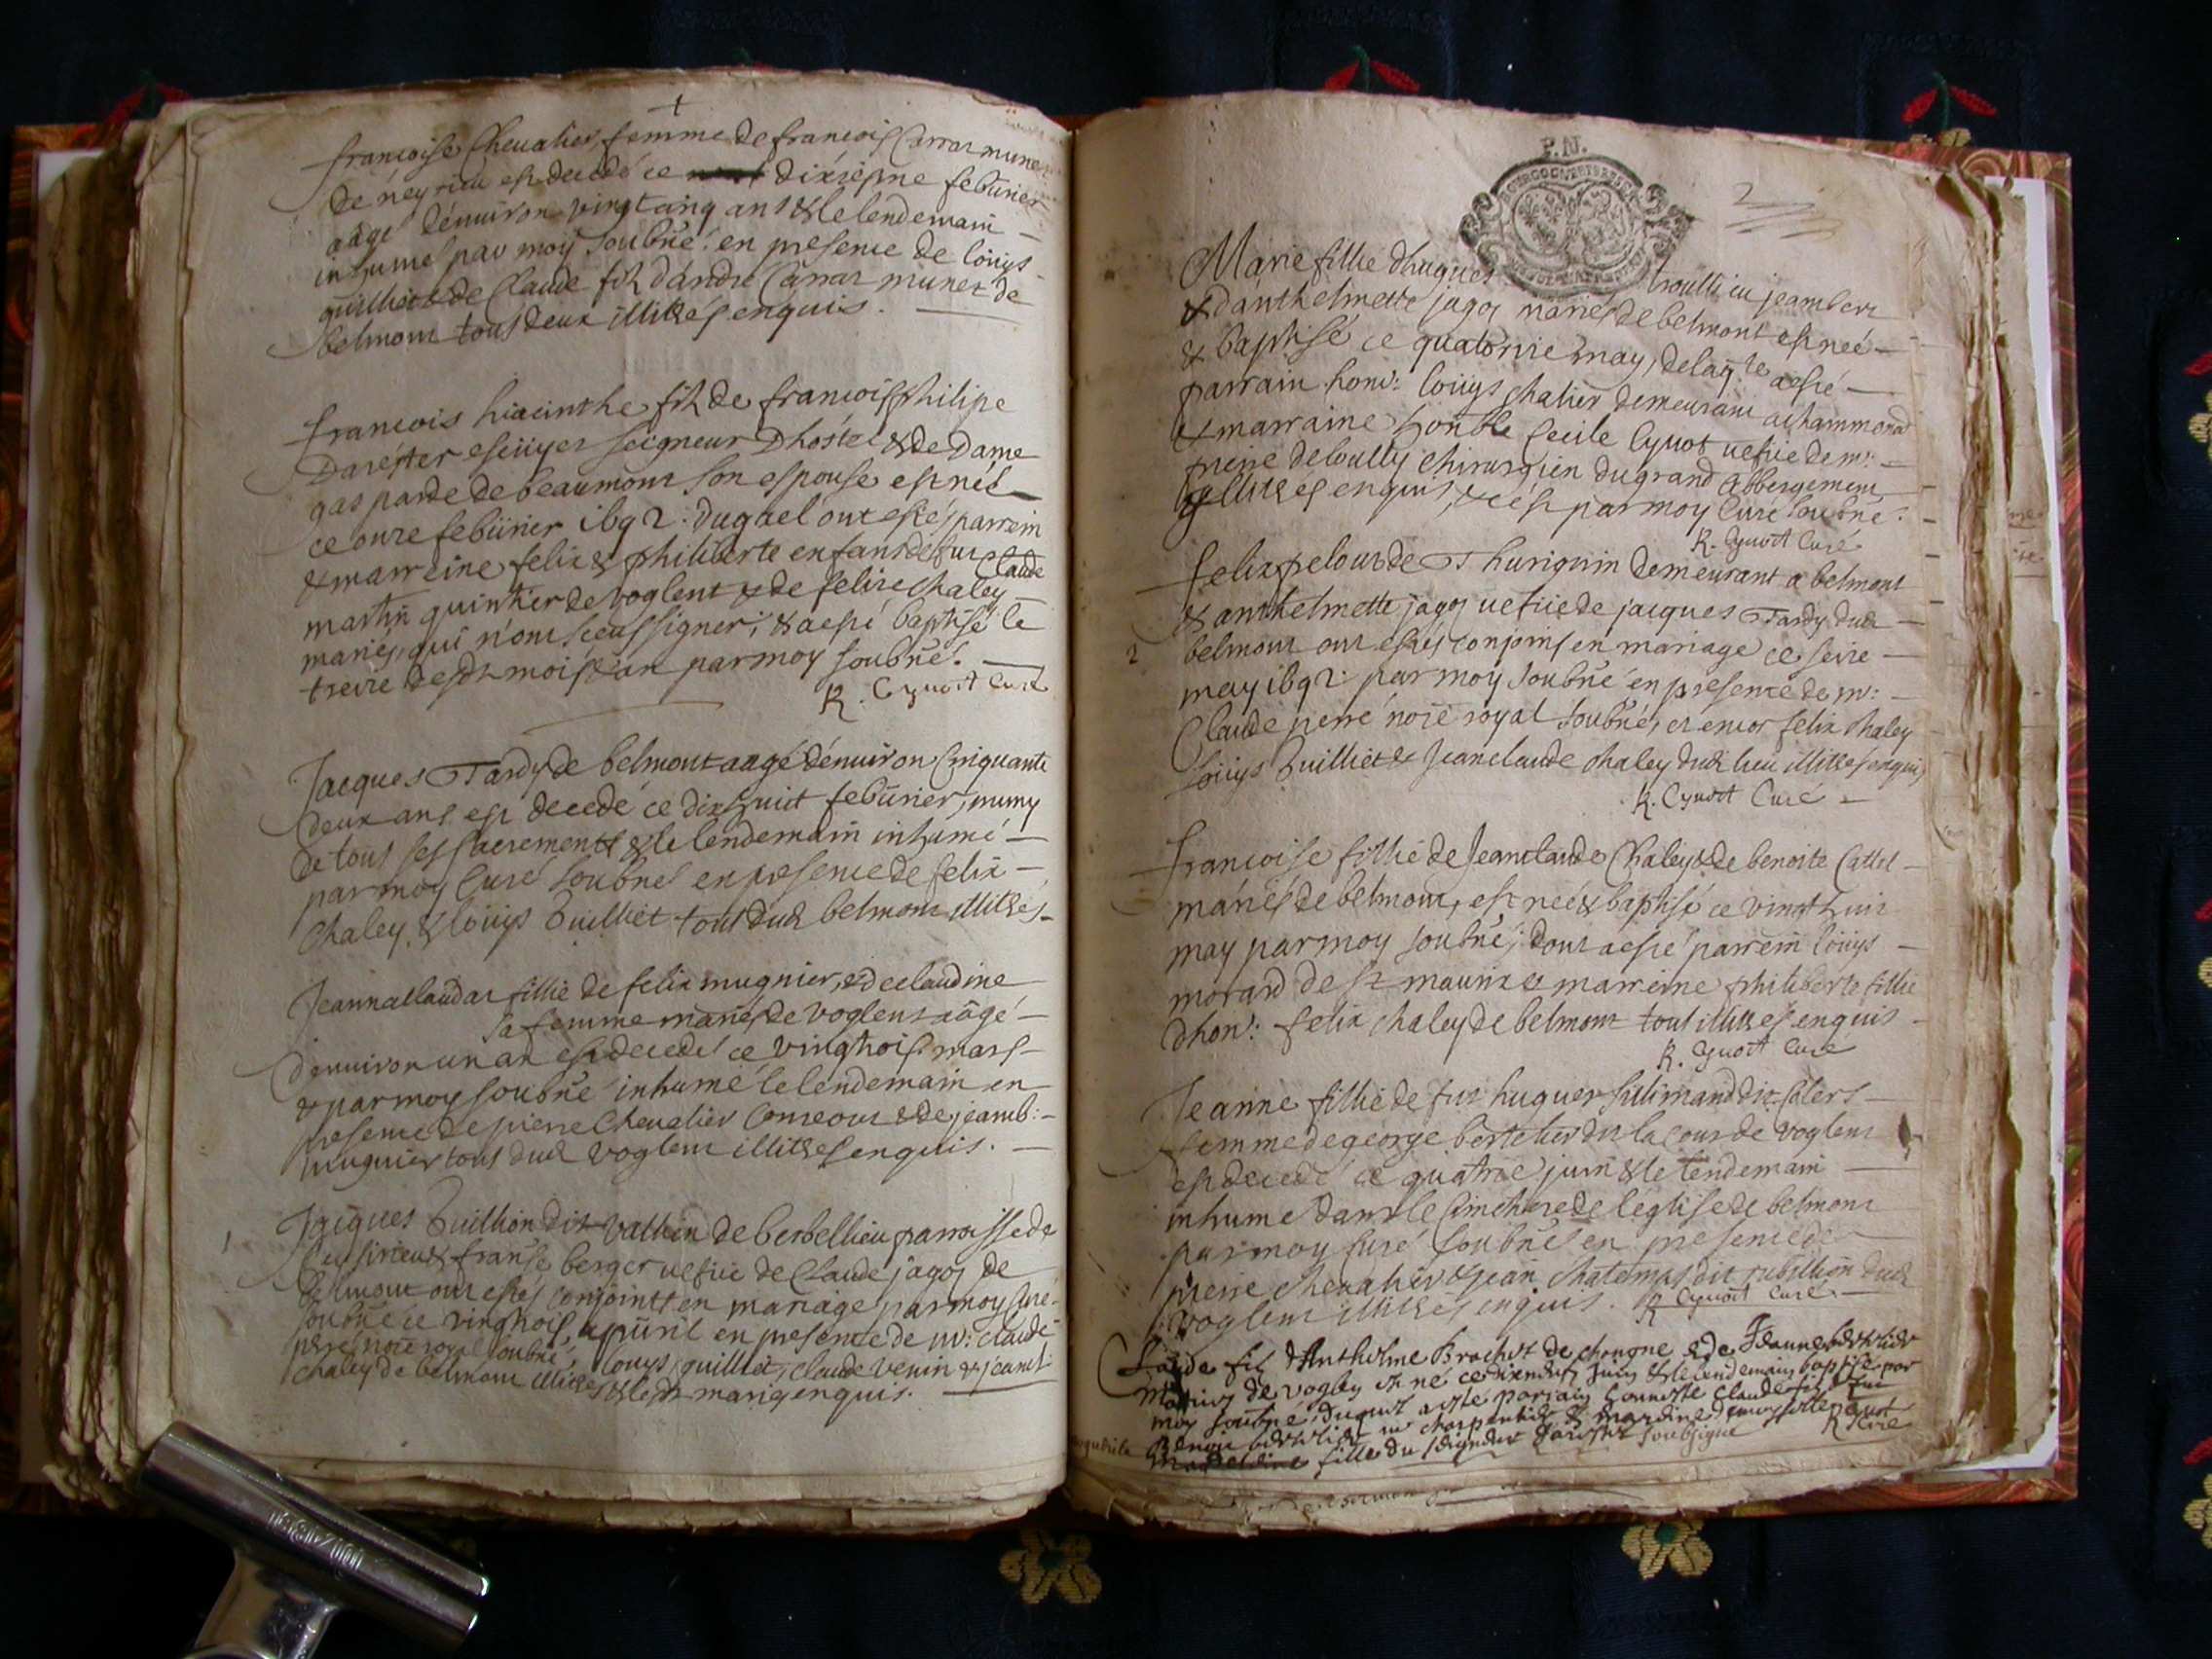 françoise Chevalier, femme de françois Carrar
de neyrieu est decedé ce dixiesme feburier
aâgé dénuiron vingt cinq ans & le lendemain
inhumé par moy soubne. en presence de loüys
guilliet & de Claude fils dándre Carrar de
belmont tous deux illitrés enquis.
françois hiacinthe fils de françois philipe
Darester escüyer seigneur Dhostel & de Dame
gasparde de beaumont son espouse est néé
ce onze febürier 1692. duquel ont estés parrein
& marreine felix & philiberte enfans de fut Claude
martin de voglent & de felize chaley
mariés, qui n'ont sceus signer, & a esté baptisé le
treize desdt mois & an par moy soubné.
R. Cyuoct Curé
Jacques Tardy de belmont aagé dénuiron Cinquante
deux ans est decedé ce dixhuict febürier, muny
de tous ses sacrements & le lendemain inhumé
par moy Curé soubne en presence de felix
Chaley, & loüys Guilliet tous dudt belmont illitrés
Jeanna claudaz fillie de felix mugnier, & de claudine
sa femme mariés de voglent aâgé
dénuiron un an est decedé ce vingtrois mars
& par moy soubné inhumé le lendemain en
presence de pierre Chevalier & de jeamb:
mugnier tous dudt voglent illitrés enquis.
1 Jacques Guillion dit Vallin de berbellieu parroisse de
& franse berger uefüe de Claude jagoz de
belmont ont estés conjoints en mariage par moy Curé
soubné ce vingtrois, apüril en presence de mr: claude
perre noire royal soubné, louys guilliet, claude venin & jeancl:
chaley de belmont illitrés & lesdts mariés enquis.
P.N.
Marie fillie dhugues jeambert
& dánthelmette jagoz mariés de belmont est néé
& baptisé ce quatorzie may, de laqle a esté
parrain hon: loüys chalier demeurant a chammond
& marraine honble Cecile Cyuot uefüe de mr:
pierre deloully chirurgien du grand Abbergement
illitrés enquis, & cést par moy Curé soubne.
R. Cyuoct Curé
felix pelour de Thurignin demeurant a belmont
& anthelmette jagoz uefüe de jacques Tardy dudt
2 belmont ont estés conjoins en mariage ce seize
may 1692. par moy soubné en presence de mr:
Claude perre noire royal soubné, et encor felix chaley
loüys Guilliet & Jeanclaude chaley dudt lieu illitrés enquis
R. Cyuoct Curé
françoise fillie de Jeanclaude Chaley & de benoite Cattel
mariés de belmont, est néé & baptisé ce vingthuit
may par moy soubné, dont a esté parrein loüys
morard de st maurix & marreine philiberte fillie
dhon: felix chaley de belmont tous illitrés enquis
R. Cyuoct Curé
Jeanne fillie de fut hugues dit Colers
femme de george bertelier dit la Cour de voglent
est decedé ce quatrie juin & le lendemain
inhume dans le Cimetiere de léglise de belmont
par moy Curé soubne en presence de
pierre chevalier & jean chatemps dit rubillion dudt
voglent illitrés enquis. R. Cyuoct Curé
Claude fils d'Anthelme Brochet de chongne & de Jeanne
mariés de vogley est né ce juin & le lendemain baptisé par
moy soubné, duquel a esté parrain honneste Claude fils de fut
Benoit charpentier & mareine demoyselle
fille du seigneur Darester soubsigné R. Cyuot Curé